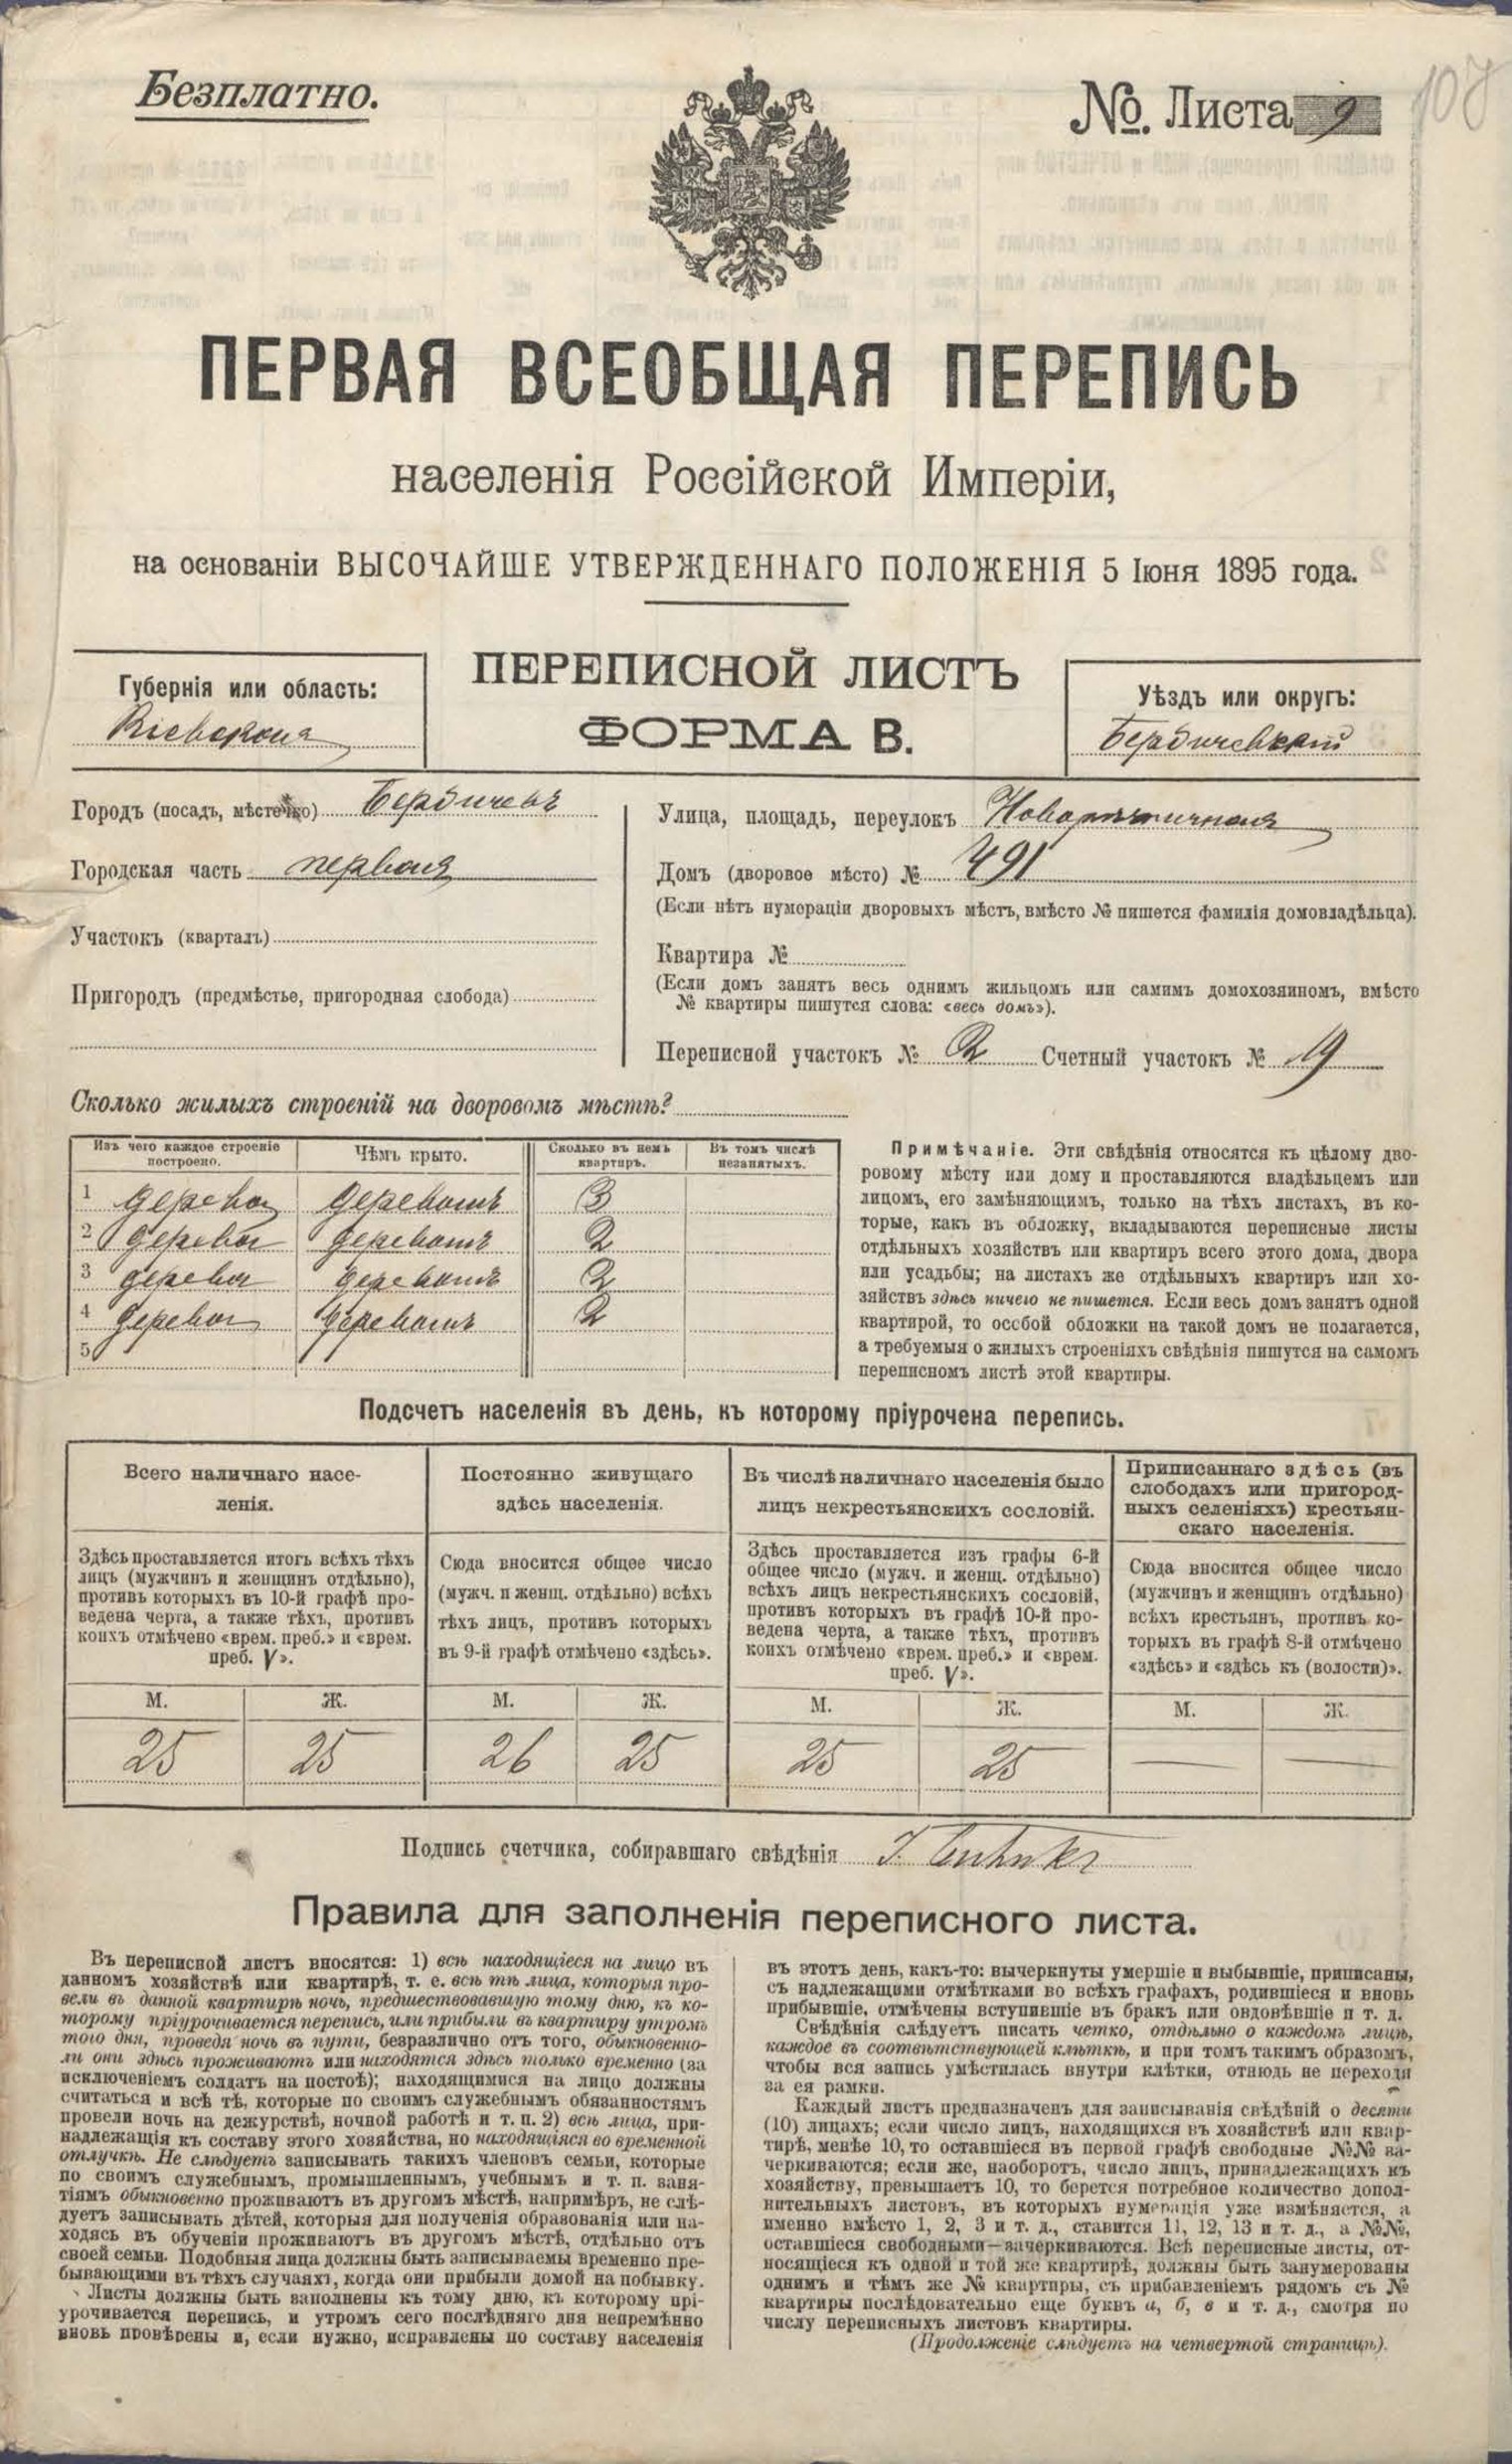 Безплатно.
№. Листа 9
107
ПЕРВАЯ ВСЕОБЩАЯ ПЕРЕПИСЬ
населенія Россійской Имперіи,
на основаніи ВЫСОЧАЙШЕ УТВЕРЖДЕННАГО ПОЛОЖЕНІЯ 5 Іюня 1895 года.
ПЕРЕПИСНОЙ ЛИСТЪ
ФОРМА В.
Губернія или область:
Кіевская
Уѣздъ или округъ:
Бердичевскій
Городъ (посадъ, мѣстечко) Бердичевъ
Городская часть первая
Участокъ (кварталъ)
Пригородъ (предмѣстье, пригородная слобода)
Улица, площадь, переулокъ
Домъ (дворовое мѣсто) № 491
(Если нѣтъ нумераціи дворовыхъ мѣстъ, вмѣсто № пишется фамилія домовладѣльца).
Квартира №
(Если домъ занятъ весь однимъ жильцомъ или самимъ домохозяиномъ, вмѣсто
№ квартиры пишутся слова: «весь домъ»).
Переписной участокъ № 2 Счетный участокъ № 19
Сколько жилыхъ строеній на дворовомъ мѣстѣ?
Изъ чего каждое строеніе построено. Чѣмъ крыто. Сколько въ немъ квартиръ. Въ томъ числѣ незанятыхъ.
1 дерева деревомъ 3
2 дерева деревомъ 2
3 дерева деревомъ 2
4 дерева деревомъ 2
5
Примѣчаніе. Эти свѣдѣнія относятся къ цѣлому дво-
ровому мѣсту или дому и проставляются владѣльцемъ или
лицомъ, его замѣняющимъ, только на тѣхъ листахъ, въ ко-
торые, какъ въ обложку, вкладываются переписные листы
отдѣльныхъ хозяйствъ или квартиръ всего этого дома, двора
или усадьбы; на листахъ же отдѣльныхъ квартиръ или хо-
зяйствъ здѣсь ничего не пишется. Если весь домъ занятъ одной
квартирой, то особой обложки на такой домъ не полагается,
а требуемыя о жилыхъ строеніяхъ свѣдѣнія пишутся на самомъ
переписномъ листѣ этой квартиры.
Подсчетъ населенія въ день, къ которому пріурочена перепись.
Всего наличнаго насе-
ленія.
Здѣсь проставляется итогъ всѣхъ тѣхъ
лицъ (мужчинъ и женщинъ отдѣльно),
противъ которыхъ въ 10-й графѣ про-
ведена черта, а также тѣхъ, противъ
коихъ отмѣчено «врем. преб.» и «врем.
преб. V».
М. Ж.
25 25
Постоянно живущаго
здѣсь населенія.
Сюда вносится общее число
(мужч. и женщ. отдѣльно) всѣхъ
тѣхъ лицъ, противъ которыхъ
въ 9-й графѣ отмѣчено «здѣсь».
М. Ж.
26 25
Въ числѣ наличнаго населенія было
лицъ некрестьянскихъ сословій.
Здѣсь проставляется изъ графы 6-й
общее число (мужч. и женщ. отдѣльно)
всѣхъ лицъ некрестьянскихъ сословій,
противъ которыхъ въ графѣ 10-й про-
ведена черта, а также тѣхъ, противъ
коихъ отмѣчено «врем. преб.» и «врем.
преб. V».
М. Ж.
25 25
Приписаннаго здѣсь (въ
слободахъ или пригород-
ныхъ селеніяхъ) крестьян-
скаго населенія.
Сюда вносится общее число
(мужчинъ и женщинъ отдѣльно)
всѣхъ крестьянъ, противъ ко-
торыхъ въ графѣ 8-й отмѣчено
«здѣсь» и «здѣсь къ (волости)».
М. Ж.
— —
Подпись счетчика, собиравшаго свѣдѣнія
Правила для заполненія переписного листа.
Въ переписной листъ вносятся: 1) всѣ находящіеся на лицо въ
данномъ хозяйствѣ или квартирѣ, т. е. всѣ тѣ лица, которыя про-
вели въ данной квартирѣ ночь, предшествовавшую тому дню, къ ко-
торому пріурочивается перепись, или прибыли въ квартиру утромъ
того дня, проведя ночь въ пути, безразлично отъ того, обыкновенно-
ли они здѣсь проживаютъ или находятся здѣсь только временно (за
исключеніемъ солдатъ на постоѣ); находящимися на лицо должны
считаться и всѣ тѣ, которые по своимъ служебнымъ обязанностямъ
провели ночь на дежурствѣ, ночной работѣ и т. п. 2) всѣ лица, при-
надлежащія къ составу этого хозяйства, но находящіяся во временной
отлучкѣ. Не слѣдуетъ записывать такихъ членовъ семьи, которые
по своимъ служебнымъ, промышленнымъ, учебнымъ и т. п. заня-
тіямъ обыкновенно проживаютъ въ другомъ мѣстѣ, напримѣръ, не слѣ-
дуетъ записывать дѣтей, которыя для полученія образованія или на-
ходясь въ обученіи проживаютъ въ другомъ мѣстѣ, отдѣльно отъ
своей семьи. Подобныя лица должны быть записываемы временно пре-
бывающими въ тѣхъ случаяхъ, когда они прибыли домой на побывку.
Листы должны быть заполнены къ тому дню, къ которому прі-
урочивается перепись, и утромъ сего послѣдняго дня непремѣнно
вновь провѣрены и, если нужно, исправлены по составу населенія
въ этотъ день, какъ-то: вычеркнуты умершіе и выбывшіе, приписаны,
съ надлежащими отмѣтками во всѣхъ графахъ, родившіеся и вновь
прибывшіе, отмѣчены вступившіе въ бракъ или овдовѣвшіе и т. д.
Свѣдѣнія слѣдуетъ писать четко, отдѣльно о каждомъ лицѣ,
каждое въ соотвѣтствующей клѣткѣ, и при томъ такимъ образомъ,
чтобы вся запись умѣстилась внутри клѣтки, отнюдь не переходя
за ея рамки.
Каждый листъ предназначенъ для записыванія свѣдѣній о десяти
(10) лицахъ; если число лицъ, находящихся въ хозяйствѣ или квар-
тирѣ, менѣе 10, то оставшіеся въ первой графѣ свободные №№ за-
черкиваются; если же, наоборотъ, число лицъ, принадлежащихъ къ
хозяйству, превышаетъ 10, то берется потребное количество допол-
нительныхъ листовъ, въ которыхъ нумерація уже измѣняется, а
именно вмѣсто 1, 2, 3 и т. д., ставится 11, 12, 13 и т. д., а №№,
оставшіеся свободными—зачеркиваются. Всѣ переписные листы, от-
носящіеся къ одной и той же квартирѣ, должны быть занумерованы
однимъ и тѣмъ же № квартиры, съ прибавленіемъ рядомъ съ №
квартиры послѣдовательно еще буквъ а, б, в и т. д., смотря по
числу переписныхъ листовъ квартиры.
(Продолженіе слѣдуетъ на четвертой страницѣ).